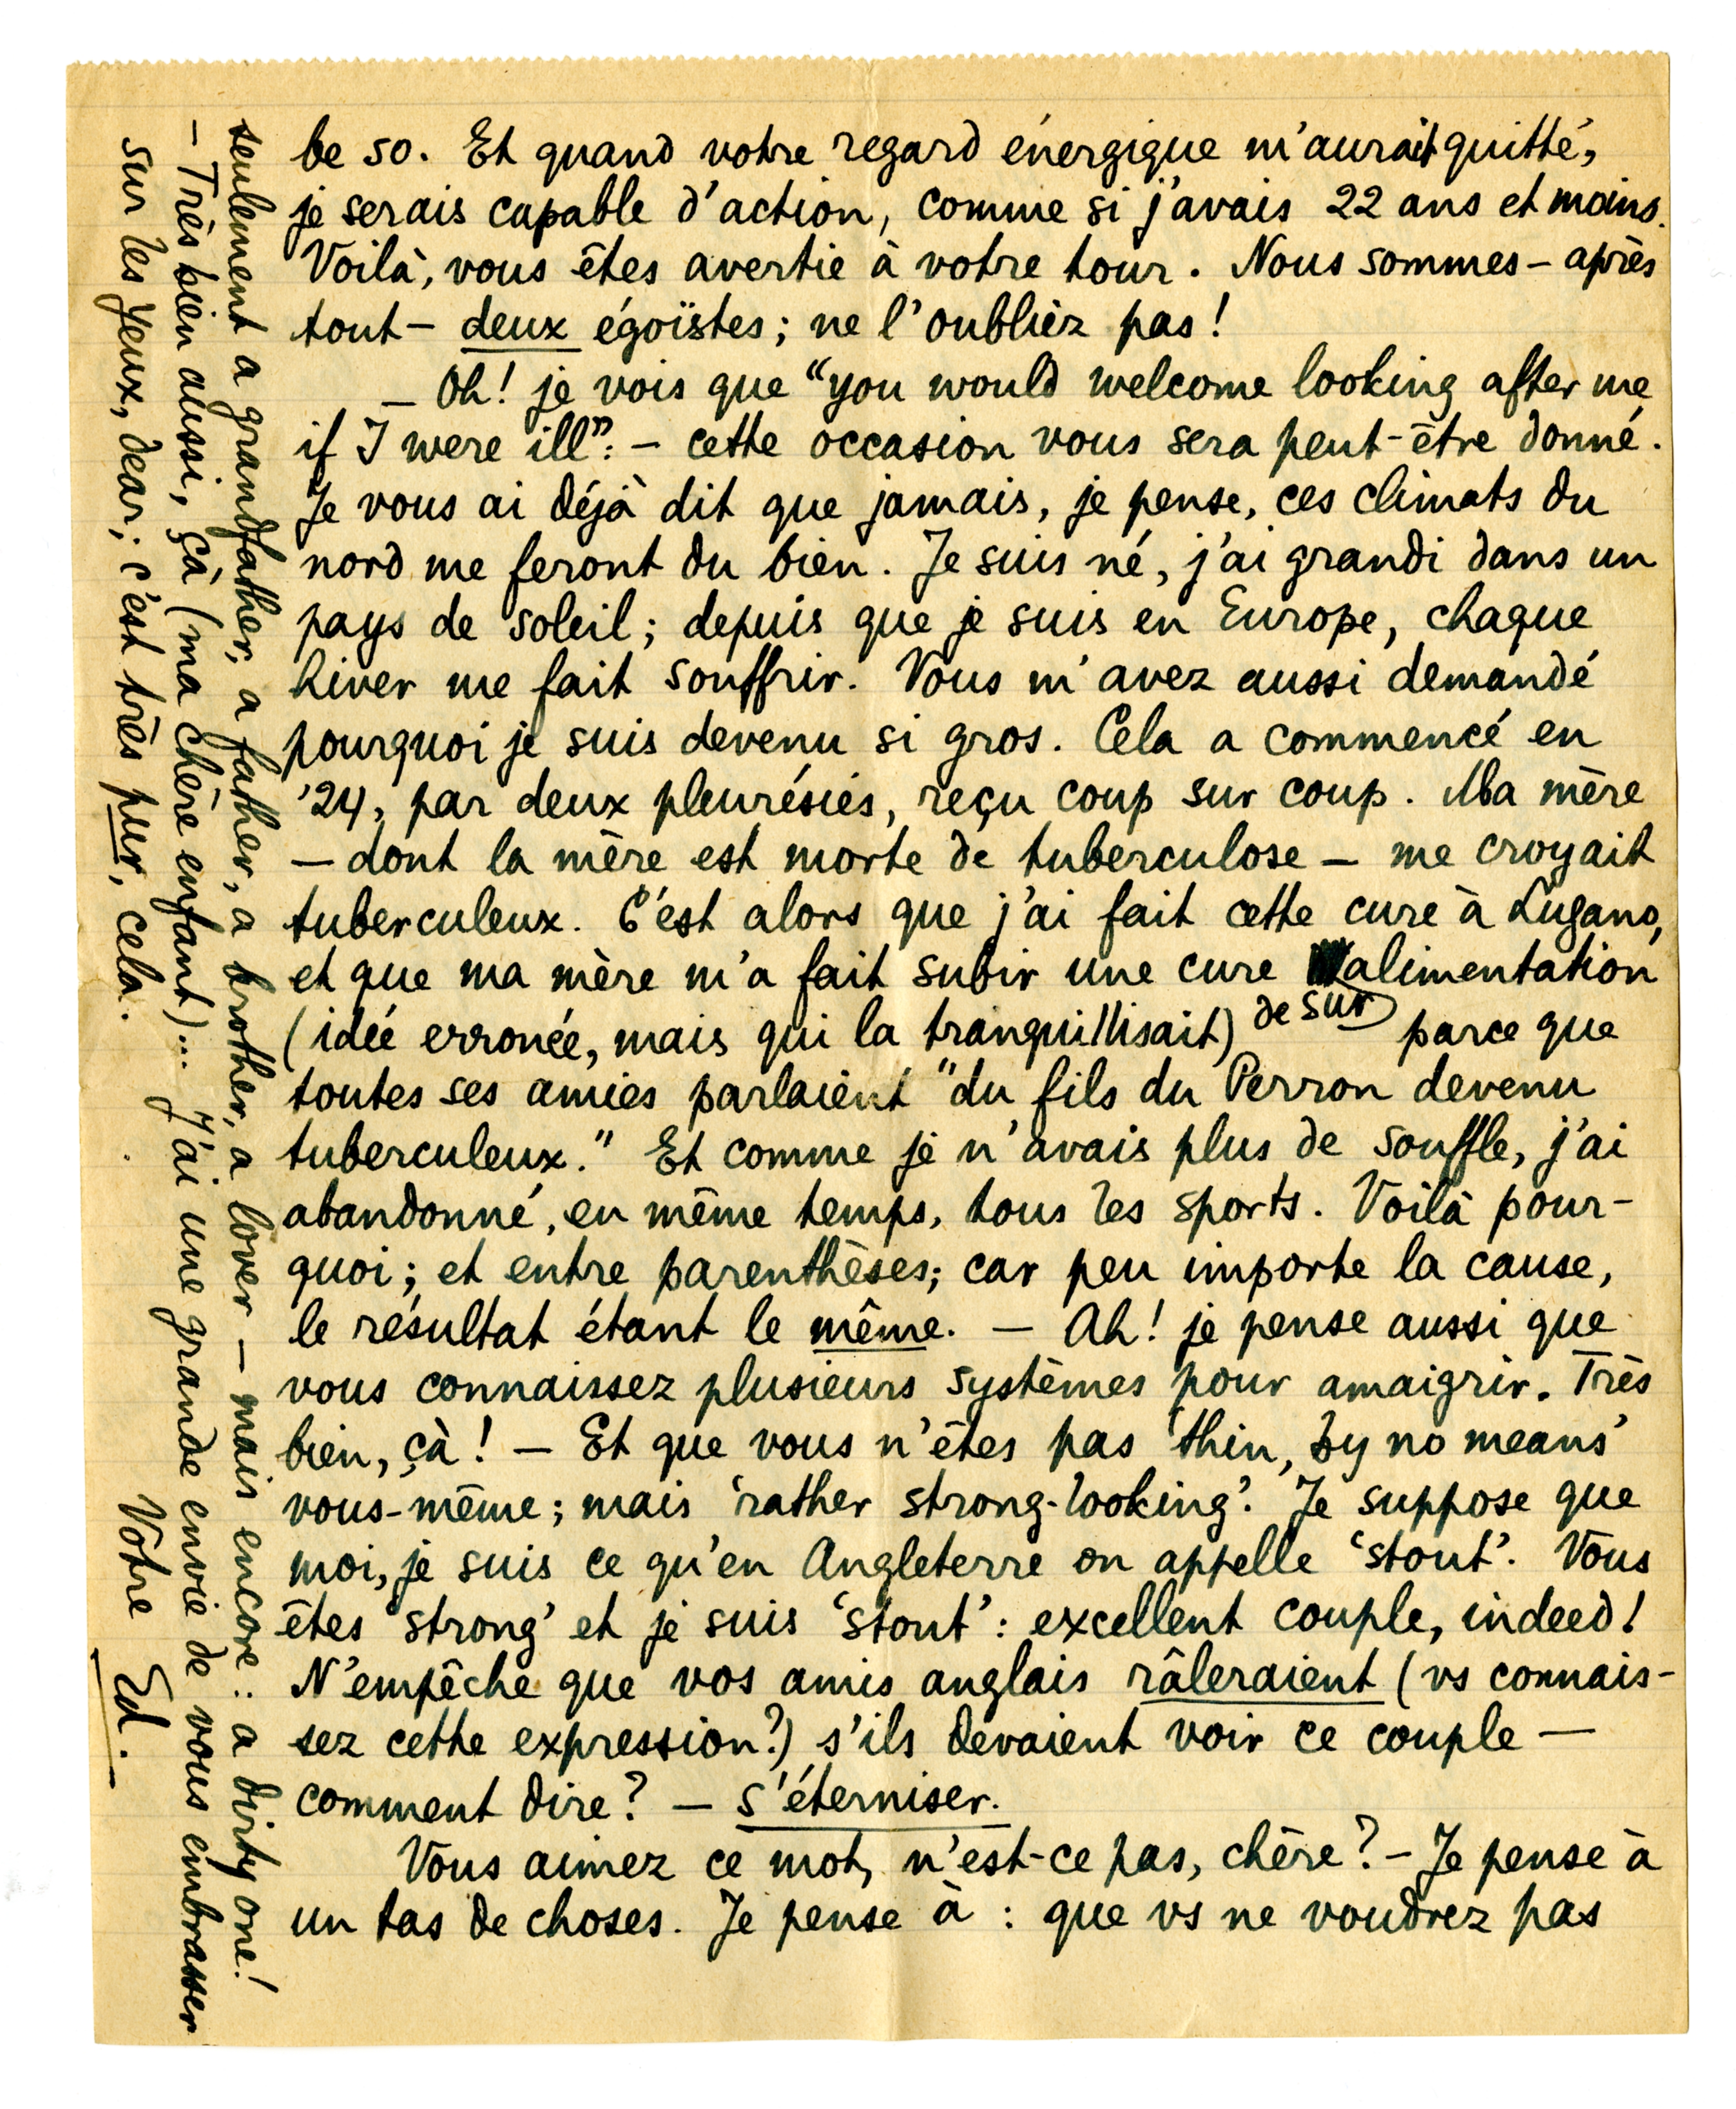 be so. Et quand votre regard énergique m'aurait quitté,
je serais capable d'action, comme si j'avais 22 ans et moins.
Voilà, vous êtes avertie à votre tour. Nous sommes – après
tout – deux égoïstes; ne l'oubliez pas!
– Oh! je vois que “you would welcome looking after me
if I were ill”. – cette occasion vous sera peut-être donné.
Je vous ai déjà dit que jamais, je pense, ces climats du
nord me feront du bien. Je suis né, j'ai grandi dans un
pays de soleil; depuis que je suis en Europe, chaque
hiver me fait souffrir. Vous m'avez aussi demandé
pourquoi je suis devenu si gros. Cela a commencé en
'24, par deux pleurésies, reçu coup sur coup. Ma mère
– dont la mère est morte de tuberculose – me croyait
tuberculeux. C'est alors que j'ai fait cette cure à Lugano,
et que ma mère m'a fait subir une cure alimentation
(idée erronée, mais qui la tranquillisait) de sur parce que
toutes ses amies parlaient "du fils du Perron devenu
tuberculeux." Et comme je n'avais plus de souffle, j'ai
abandonné, en même temps, tous les sports. Voilà pour-
quoi; et entre parenthèses; car peu importe la cause,
le résultat étant le même. – Ah! je pense aussi que
vous connaissez plusieurs systèmes pour amaigrir. Très
bien, çà! – Et que vous n'êtes pas 'thin, by no means'
vous-même; mais 'rather strong-looking'. Je suppose que
moi, je suis ce qu'en Angleterre on appelle 'stout'. Vous
êtes 'strong' et je suis 'stout': excellent couple, indeed!
N'empêche que vos amis anglais râleraient (vs connais-
sez cette expression?) s'ils devaient voir ce couple –
comment dire? – s'éterniser.
Vous aimez ce mot, n'est-ce pas, chère? – Je pense à
un tas de choses. Je pense à : que vs ne voudrez pas
seulement a grandfather, a father, a brother, a lover – mais encore : a dirty one!
– Très bien aussi, çà (ma chère enfant)... J'ai une grande envie de vous embrasser
sur les yeux, dear; c'est très pur, cela.
Votre Ed.